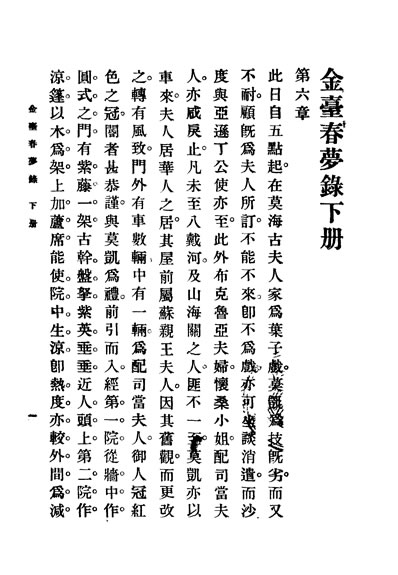 金臺春夢錄下册
第六章
此日自五點起。在莫海古夫人家爲葉子戲。莫凱爲技既劣。而又
不耐。顧既爲夫人所訂。不能不來。卽不爲戲。亦可坐談消遣。而沙
度與亞遜丁公使亦至。此外布克魯亞夫婦。懷桑小姐。配司當夫
人。亦咸戾止。凡未至八戴河及山海關之人。匪不一至。莫凱亦以
車來。夫人居華人之居。其屋前屬蘇親王夫人。因其舊觀而更改
之。轉有風致。門外有車數輛。中有一輛。爲配司當夫人。御人冠紅
色之冠。閽者甚恭謹。與莫凱爲禮。前引而入。經第一院。從牆中作
圓式之門。有紫藤一架。古幹盤拏。紫英垂垂近人頭上。第二院作
涼篷。以木爲架。上加蘆席。能使院中生涼。卽熱度亦較外間爲減
金臺春夢錄 下册
一